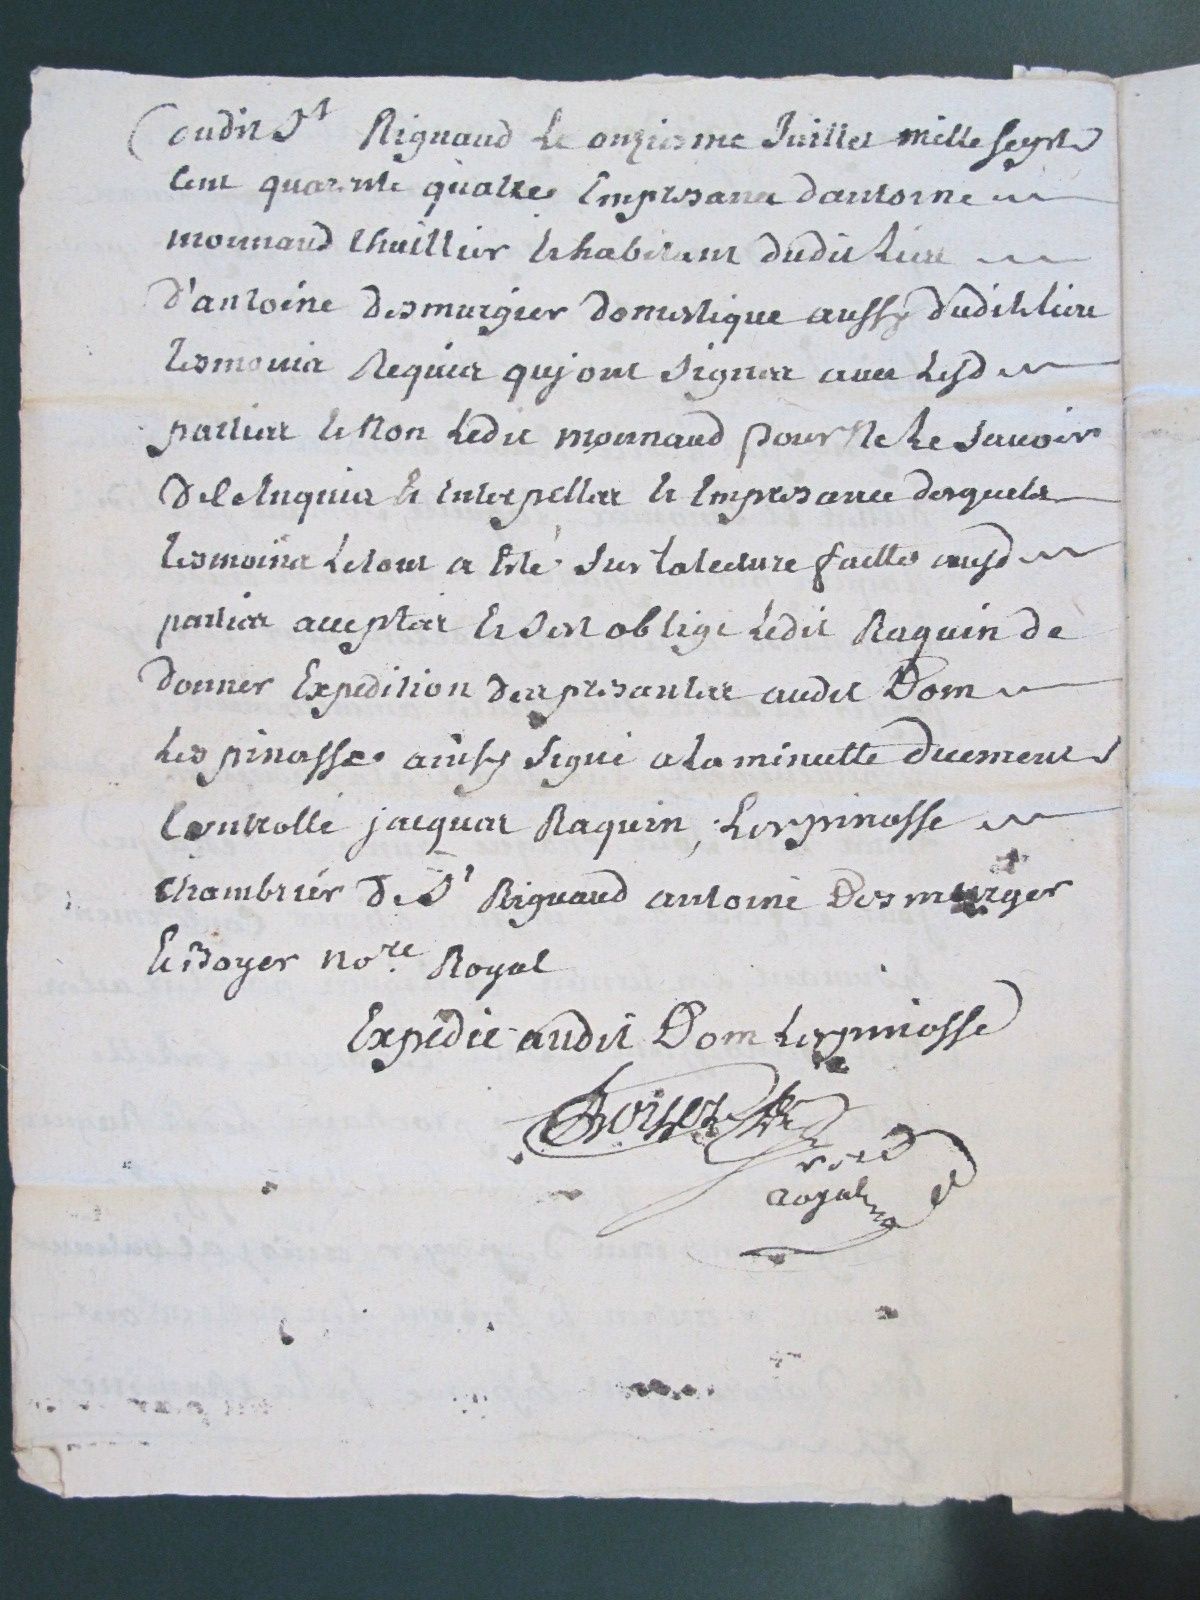 audit St Rignaud le onziesme Juillet mille sept
cent quarente quattre En presance d'antoine
mounaud thuillier et habitant dudit lieu
d'antoine desmurgier domestique aussy dudit lieu
tesmoins Requis quj ont signes avec lesd
parties et Non ledit mounaud pour Ne le savoir
de ce Enquis et interpelles et En presance desquels
tesmoins le tout a esté sur la lecture faitte ausd
parties accepter et s'est obligé ledit Raquin de
donner Expedition des presantes audit Dom
Lespinasse ainsy signé a la minutte duement
Controllé jacques Raquin, Lespinasse
chambrier de St Rignaud antoine Desmurger
Et Boyer nore Royal
Expédié audit Dom Lespinasse
Royal